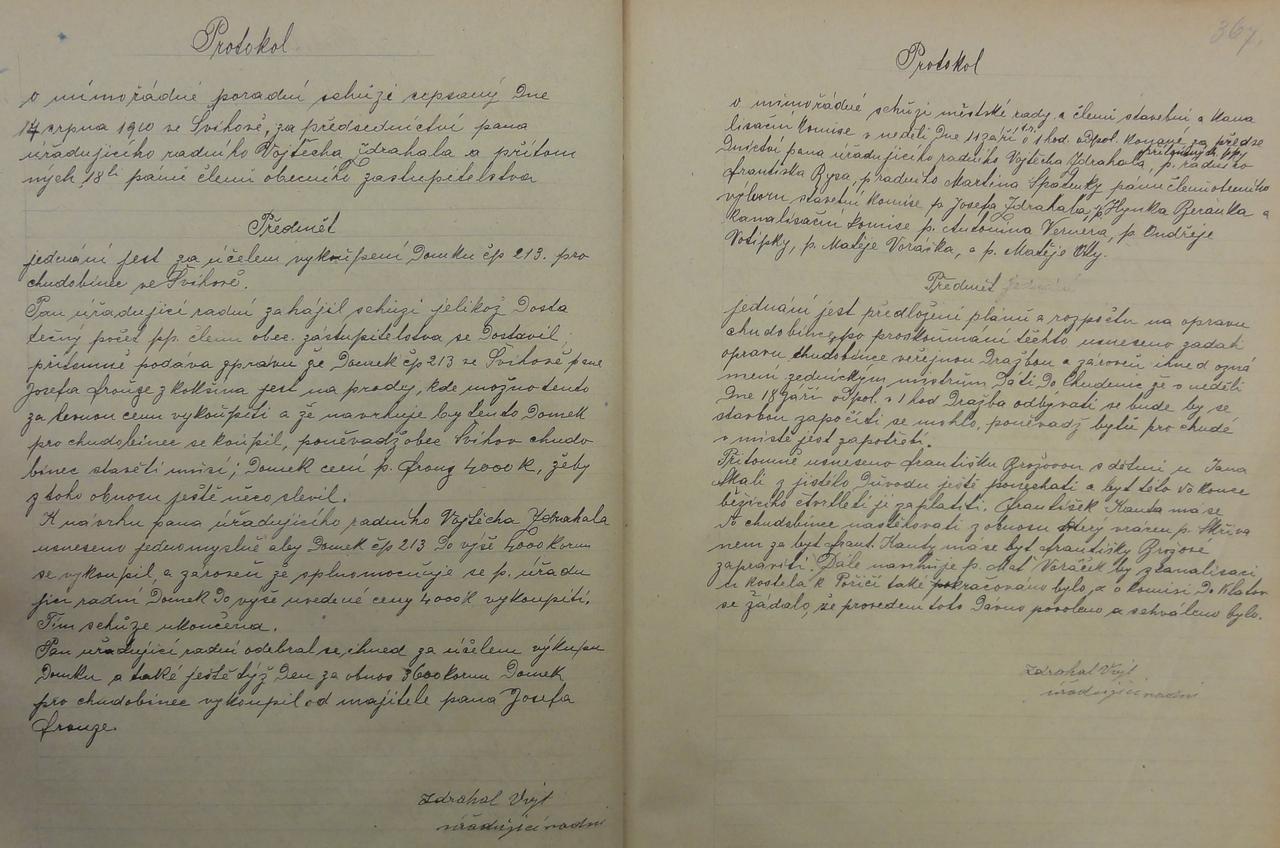 Protokol
o mimořádné poradní schůzi sepsaný dne
14 srpna 1910 ve Švihově, za předsednictví pana
úřadujícího radního Vojtěcha Zdrahala a přítom
ných 18ti pánů členů obecního zastupitelstva
Předmět
jednání jest za účelem vykoupení domku čp 213. pro
chudobinec ve Švihově.
Pan úřadující radní zahájil schůzi jelikož dosta
tečný počet pp. členů obec. zastupitelstva se dostavil,
přítomně podává zprávu že domek čp 213 ve Švihově pana
Josefa Frouze z Kokšína jest na prodej, kde možno tento
za levnou cenu vykoupiti a že navrhuje by tento domek
pro chudobinec se koupil, poněvadž obec Švihov chudo
binec stavěti musí; domek cení p. Frouz 4000 K, žeby
z toho obnosu ještě něco slevil.
K návrhu pana úřadujícího radního Vojtěcha Zdrahala
usneseno jednomyslně aby domek čp 213 do výše 4000 korun
se vykoupil, a zároveň že splnomocňuje se p. úřadu
jící radní domek do výše uvedené ceny 4000 K vykoupiti.
Tím schůze ukončena.
Pan úřadující radní odebral se ihned za účelem výkupu
domku a také ještě týž den za obnos 3600 korun domek
pro chudobinec vykoupil od majitele pana Josefa
Frouze.
Zdrahal Vojt
úřadující radní
367.
Protokol
o mimořádné schůzi městské rady a členů stavební a kana
lisační komise v neděli dne 11 září o 1 hod. odpol. konané za předse
dnictví pana úřadujícího radního Vojtěcha Zdrahala, přítomných pp. p. radního
Františka Rysa, p. radního Martina Spálenky pánů členů
výboru stavební komise p. Josefa Zdrahala, p. Hynka Beránka a
kanalisační komise p. Antonína Vernera, p. Ondřeje
Votípky, p. Matěje Voráčka, a p. Matěje
Předmět jednání
jednání jest předložení plánu a rozpočtu na opravu
chudobince, po proskoumání těchto usneseno zadati
opravu chudobince veřejnou dražbou a zároveň ihned ozná
mení zednickým mistrům dáti do Chudenic že v neděli
dne 18 září odpol. v 1 hod dražba odbývati se bude by se
stavbou započíti se mohlo, poněvadž bytů pro chudé
v místě jest zapotřebí.
Přítomně usneseno Františku Brožovou s dětmi u Jana
Skaly z jistého důvodu ještě ponechati a byt této do konce
běžícího čtvrtletí jí zaplatiti. František Kanta má se
do chudobince nastěhovati z obnosu který vrácen p. Skřiva
nem za byt Frant. Kanty má se byt Františky Brožové
zapraviti. Dále navrhuje p. Mat Voráček by s kanalisací
u kostela k Poříčí také pokračováno bylo, a o komisi do Klatov
se žádalo, že provedení toto dávno povoleno a schváleno bylo.
Zdrahal Vojt
úřadující radní